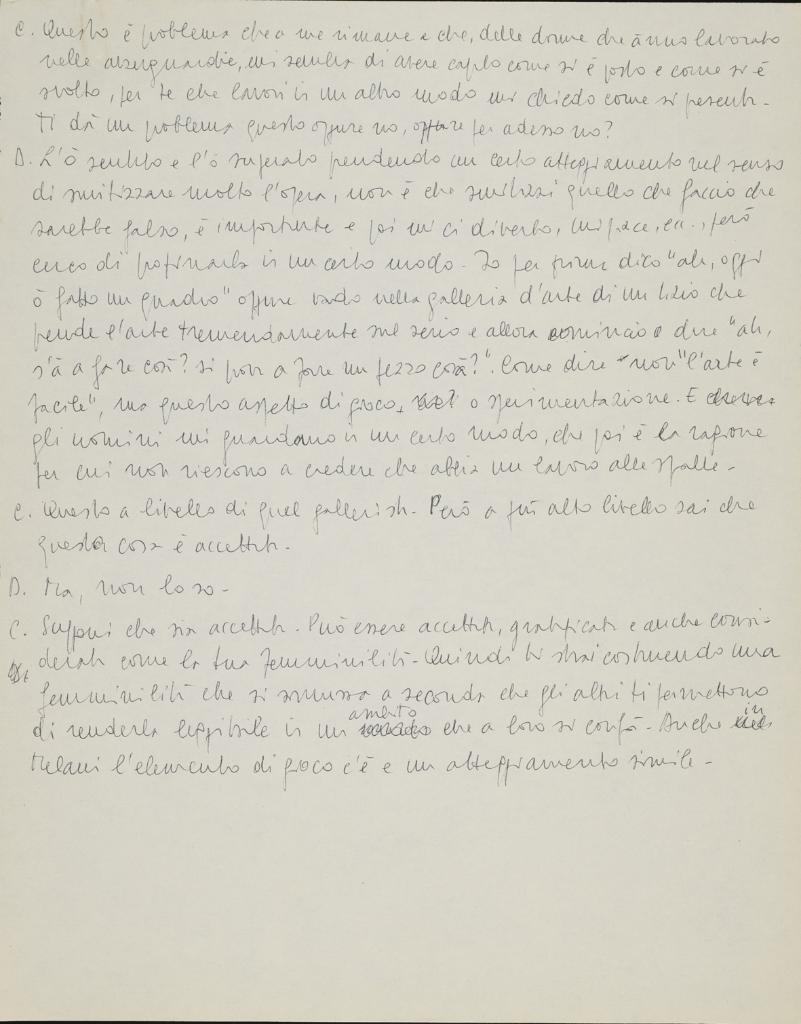 C. Questo è problema che a me rimane e che, delle donne che ànno lavorato
nelle avanguardie, mi sembra di avere capito come si è posto e come si è
svolto, per te che lavori in un altro modo mi chiedo come si presenta.
Ti dà un problema questo oppure no, oppure per adesso no?
D. L'ò sentito e l'ò superato prendendo un certo atteggiamento nel senso
di smitizzare molto l'opera, non è che smitizzi quello che faccio che
sarebbe falso, è importante e poi mi ci diverto, mi piace, ecc., però
cerco di in un certo modo. Io per prima dico "ah, oggi
ò fatto un quadro" oppure vado nella galleria d'arte di un tizio che
prende l'arte tremendamente sul serio e allora comincio a dire "ah,
s'à a fare così? si pon a fare un pezzo così?". Come dire non "l'arte è
facile", ma questo aspetto di gioco, o sperimentazione. E
gli uomini mi guardano in un certo modo, che poi è la ragione
per cui non riescono a credere che abbia un lavoro alle spalle.
C. Questo a livello di quel gallerista. Però a più alto livello sai che
questa cosa è accettata.
D. Ma, non lo so.
C. Supponi che sia accettata. Può essere accettata, gratificata e anche consi-
derata come la tua femminilità. Quindi tu stai costruendo una
femminilità che si smussa a seconda che gli altri ti permettono
di renderla leggibile in un ambito che a loro si confà. Anche in
Melani l'elemento di gioco c'è e un atteggiamento simile.